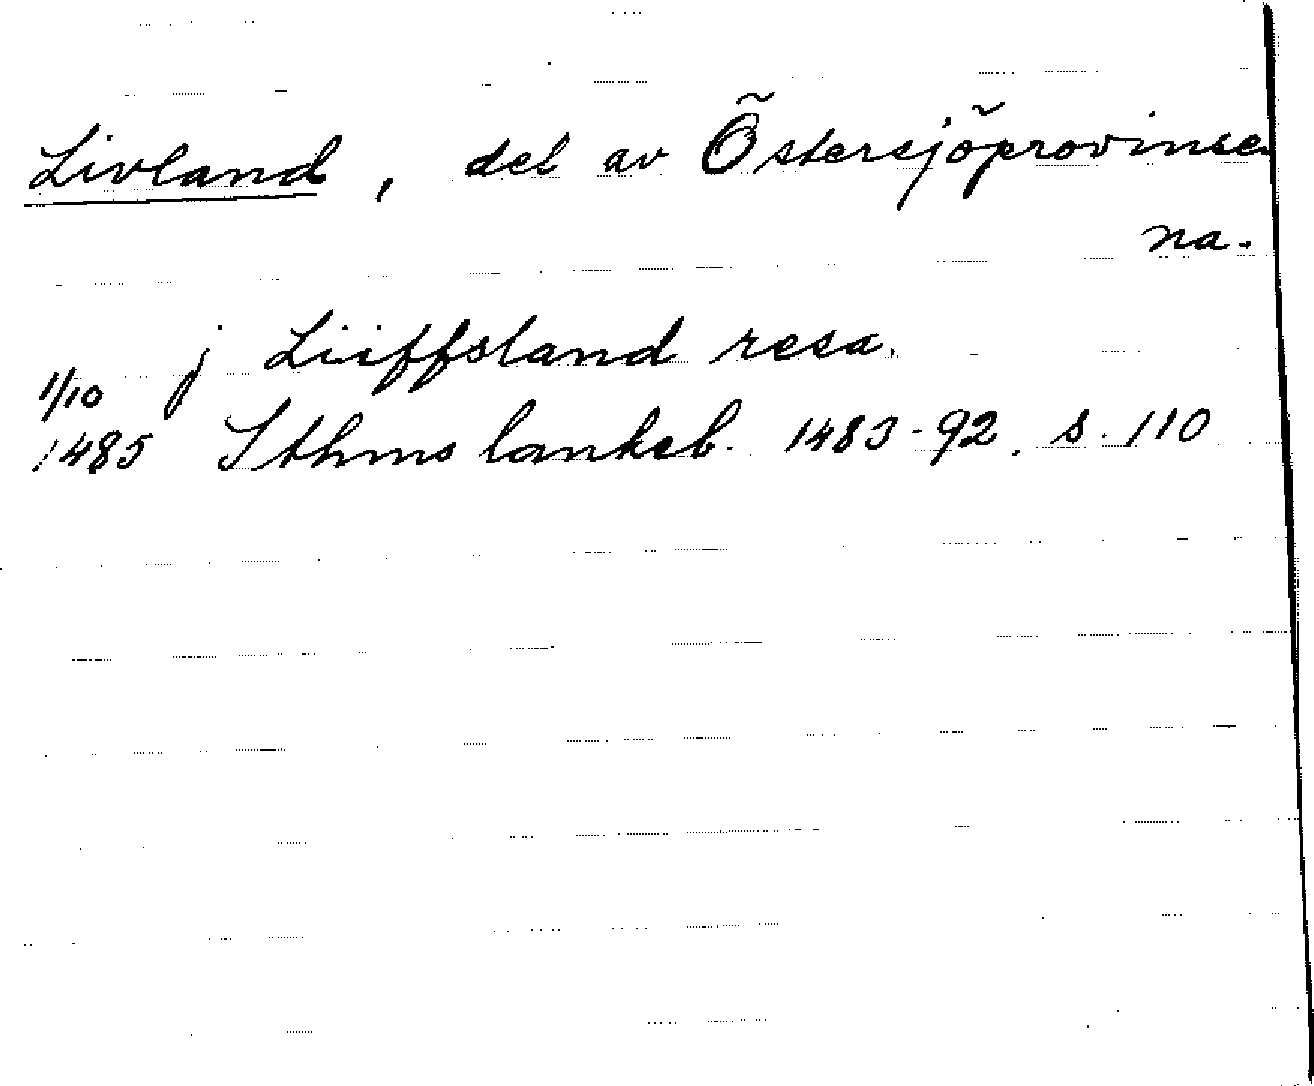 Livland, del av Östersjöprovinser
na.
j Liiffsland resa.
1/10
1485 Sthms tankeb. 1483-92. s. 110